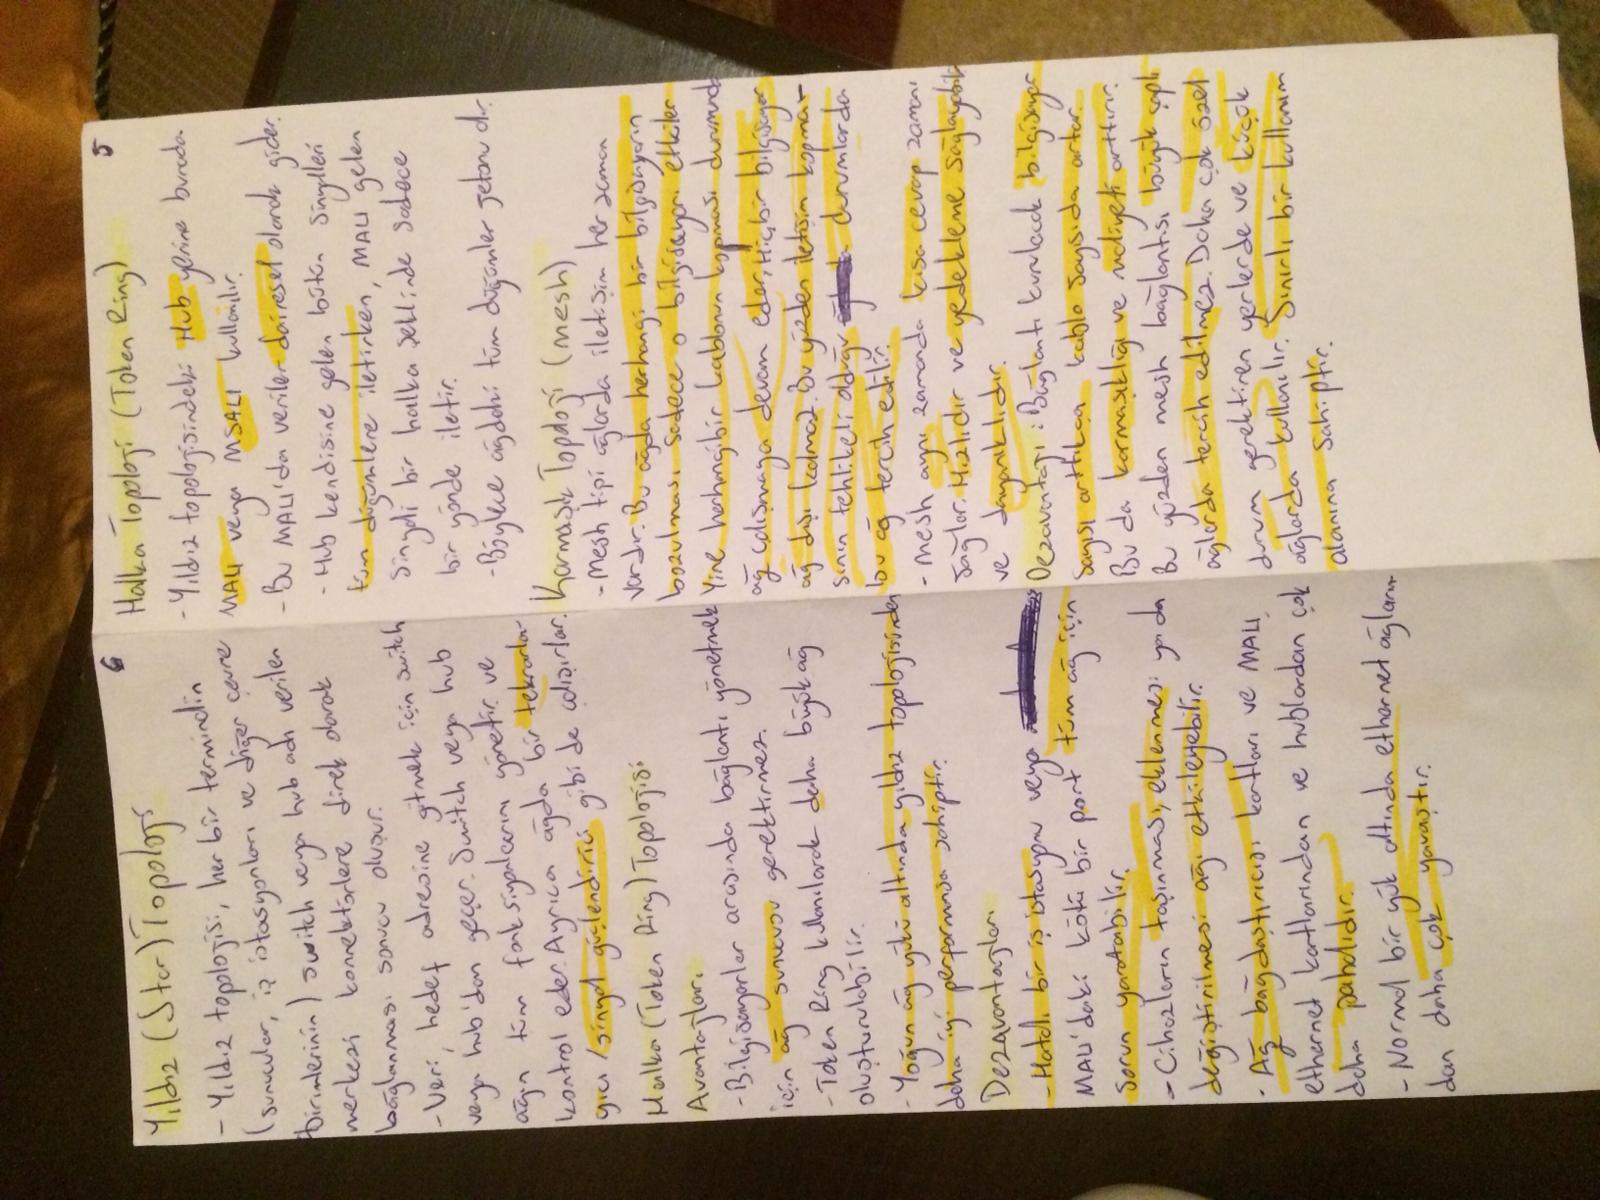 6
Yıldız (Star) Topoloji
- Yıldız topolojisi, her bir terminalin
(sunucular, iş istasyonları ve diğer çevre
birimlerinin) switch veya hub adı verilen
merkezi konnektörlere direk olarak
bağlanması sonucu oluşur.
- Veri, hedef adresine gitmek için switch
veya hub'dan geçer. Switch veya hub
ağın tüm fonksiyonlarını yönetir ve
kontrol eder. Ayrıca ağda bir tekrarla-
yıcı / sinyal güçlendirici gibi de çalışırlar.
Halka (Token Ring) Topolojisi
Avantajları
- Bilgisayarlar arasında bağlantı yönetmek
için ağ sunucusu gerektirmez.
- Token Ring kullanılarak daha büyük ağ
oluşturulabilir.
- Yoğun ağ yükü altında yıldız topolojisinden
daha iyi performansa sahiptir.
Dezavantajları
- Hatalı bir iş istasyonu veya
MAU'daki kötü bir port tüm ağ için
sorun yaratabilir.
- Cihazların taşınması, eklenmesi ya da
değiştirilmesi ağı etkileyebilir.
- Ağ bağdaştırıcısı kartları ve MAU,
ethernet kartlarından ve hublardan çok
daha pahalıdır.
- Normal bir yük altında ethernet ağların-
dan daha çok yavaştır.
5
Halka Topoloji (Token Ring)
- Yıldız topolojisindeki Hub yerine burada
MAU veya MSAU kullanılır.
- Bu MAU'da veriler dairesel olarak gider.
- Hub kendisine gelen bütün sinyalleri
tüm düğümlere iletirken, MAU gelen
sinyali bir halka şeklinde sadece
bir yönde iletir.
- Böylece ağdaki tüm düğümler jetonu alır.
Karmaşık Topoloji (mesh)
- Mesh tipi ağlarda iletişim her zaman
vardır. Bu ağda herhangi bir bilgisayarın
bozulması sadece o bilgisayarı etkiler
Yine herhangibir kablonun kopması durumunda
ağ çalışmaya devam eder, Hiçbir bilgisayar
ağ dışı kalmaz. Bu yüzden iletişim kopma-
sının tehlikeli olduğu durumlarda
bu ağ tercih edilir.
- Mesh aynı zamanda kısa cevap zamanı
sağlar. Hızlıdır ve yedekleme sağlayabilir
ve dayanıklıdır.
Dezavantajı : Bağlantı kurulacak bilgisayar
sayısı arttıkça kablo sayısıda artar.
Bu da karmaşıklığı ve maliyeti arttırır.
Bu yüzden mesh bağlantısı büyük çaplı
ağlarda tercih edilmez. Daha çok özel
durum gerektiren yerlerde ve küçük
ağlarda kullanılır. Sınırlı bir kullanım
alanına sahiptir.